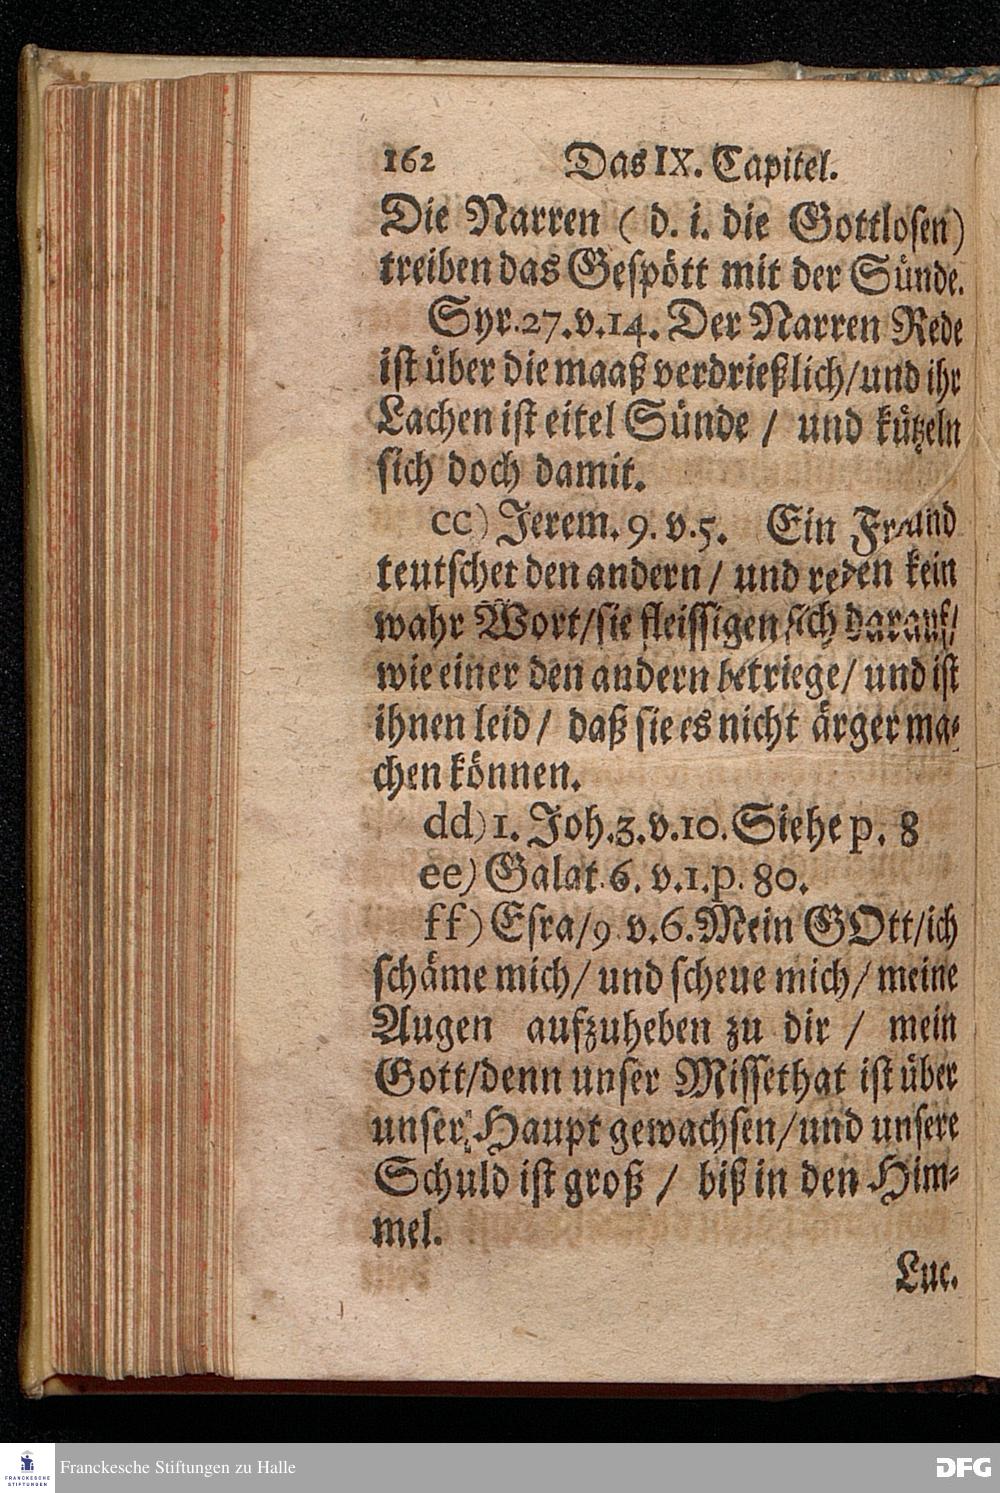 162 Das IX. Capitel.
Die Narren ( d. i. die Gottlosen)
treiben das Gespött mit der Sünde.
Syr. 27. v. 14. Der Narren Rede
ist über die maaß verdrießlich/und ihr
Lachen ist eitel Sünde / und kützeln
sich doch damit.
cc) Jerem. 9. v. 5. Ein Freund
teutschet den andern / und reden kein
wahr Wort/sie fleissigen sich darauf/
wie einer den andern betriege/ und ist
ihnen leid / daß sie es nicht ärger ma-
chen können.
dd) 1. Joh. 3. v. 10. Siehe p. 8
ee) Galat. 6. v. 1. p. 80.
ff) Esra/9 v. 6. Mein GOtt/ich
schäme mich/ und scheue mich/ meine
Augen aufzuheben zu dir / mein
Gott/denn unser Missethat ist über
unser Haupt gewachsen/und unsere
Schuld ist groß / biß in den Him-
mel.
Luc.
FRANCKESCHE
STIFTUNGEN
Franckesche Stiftungen zu Halle
DFG